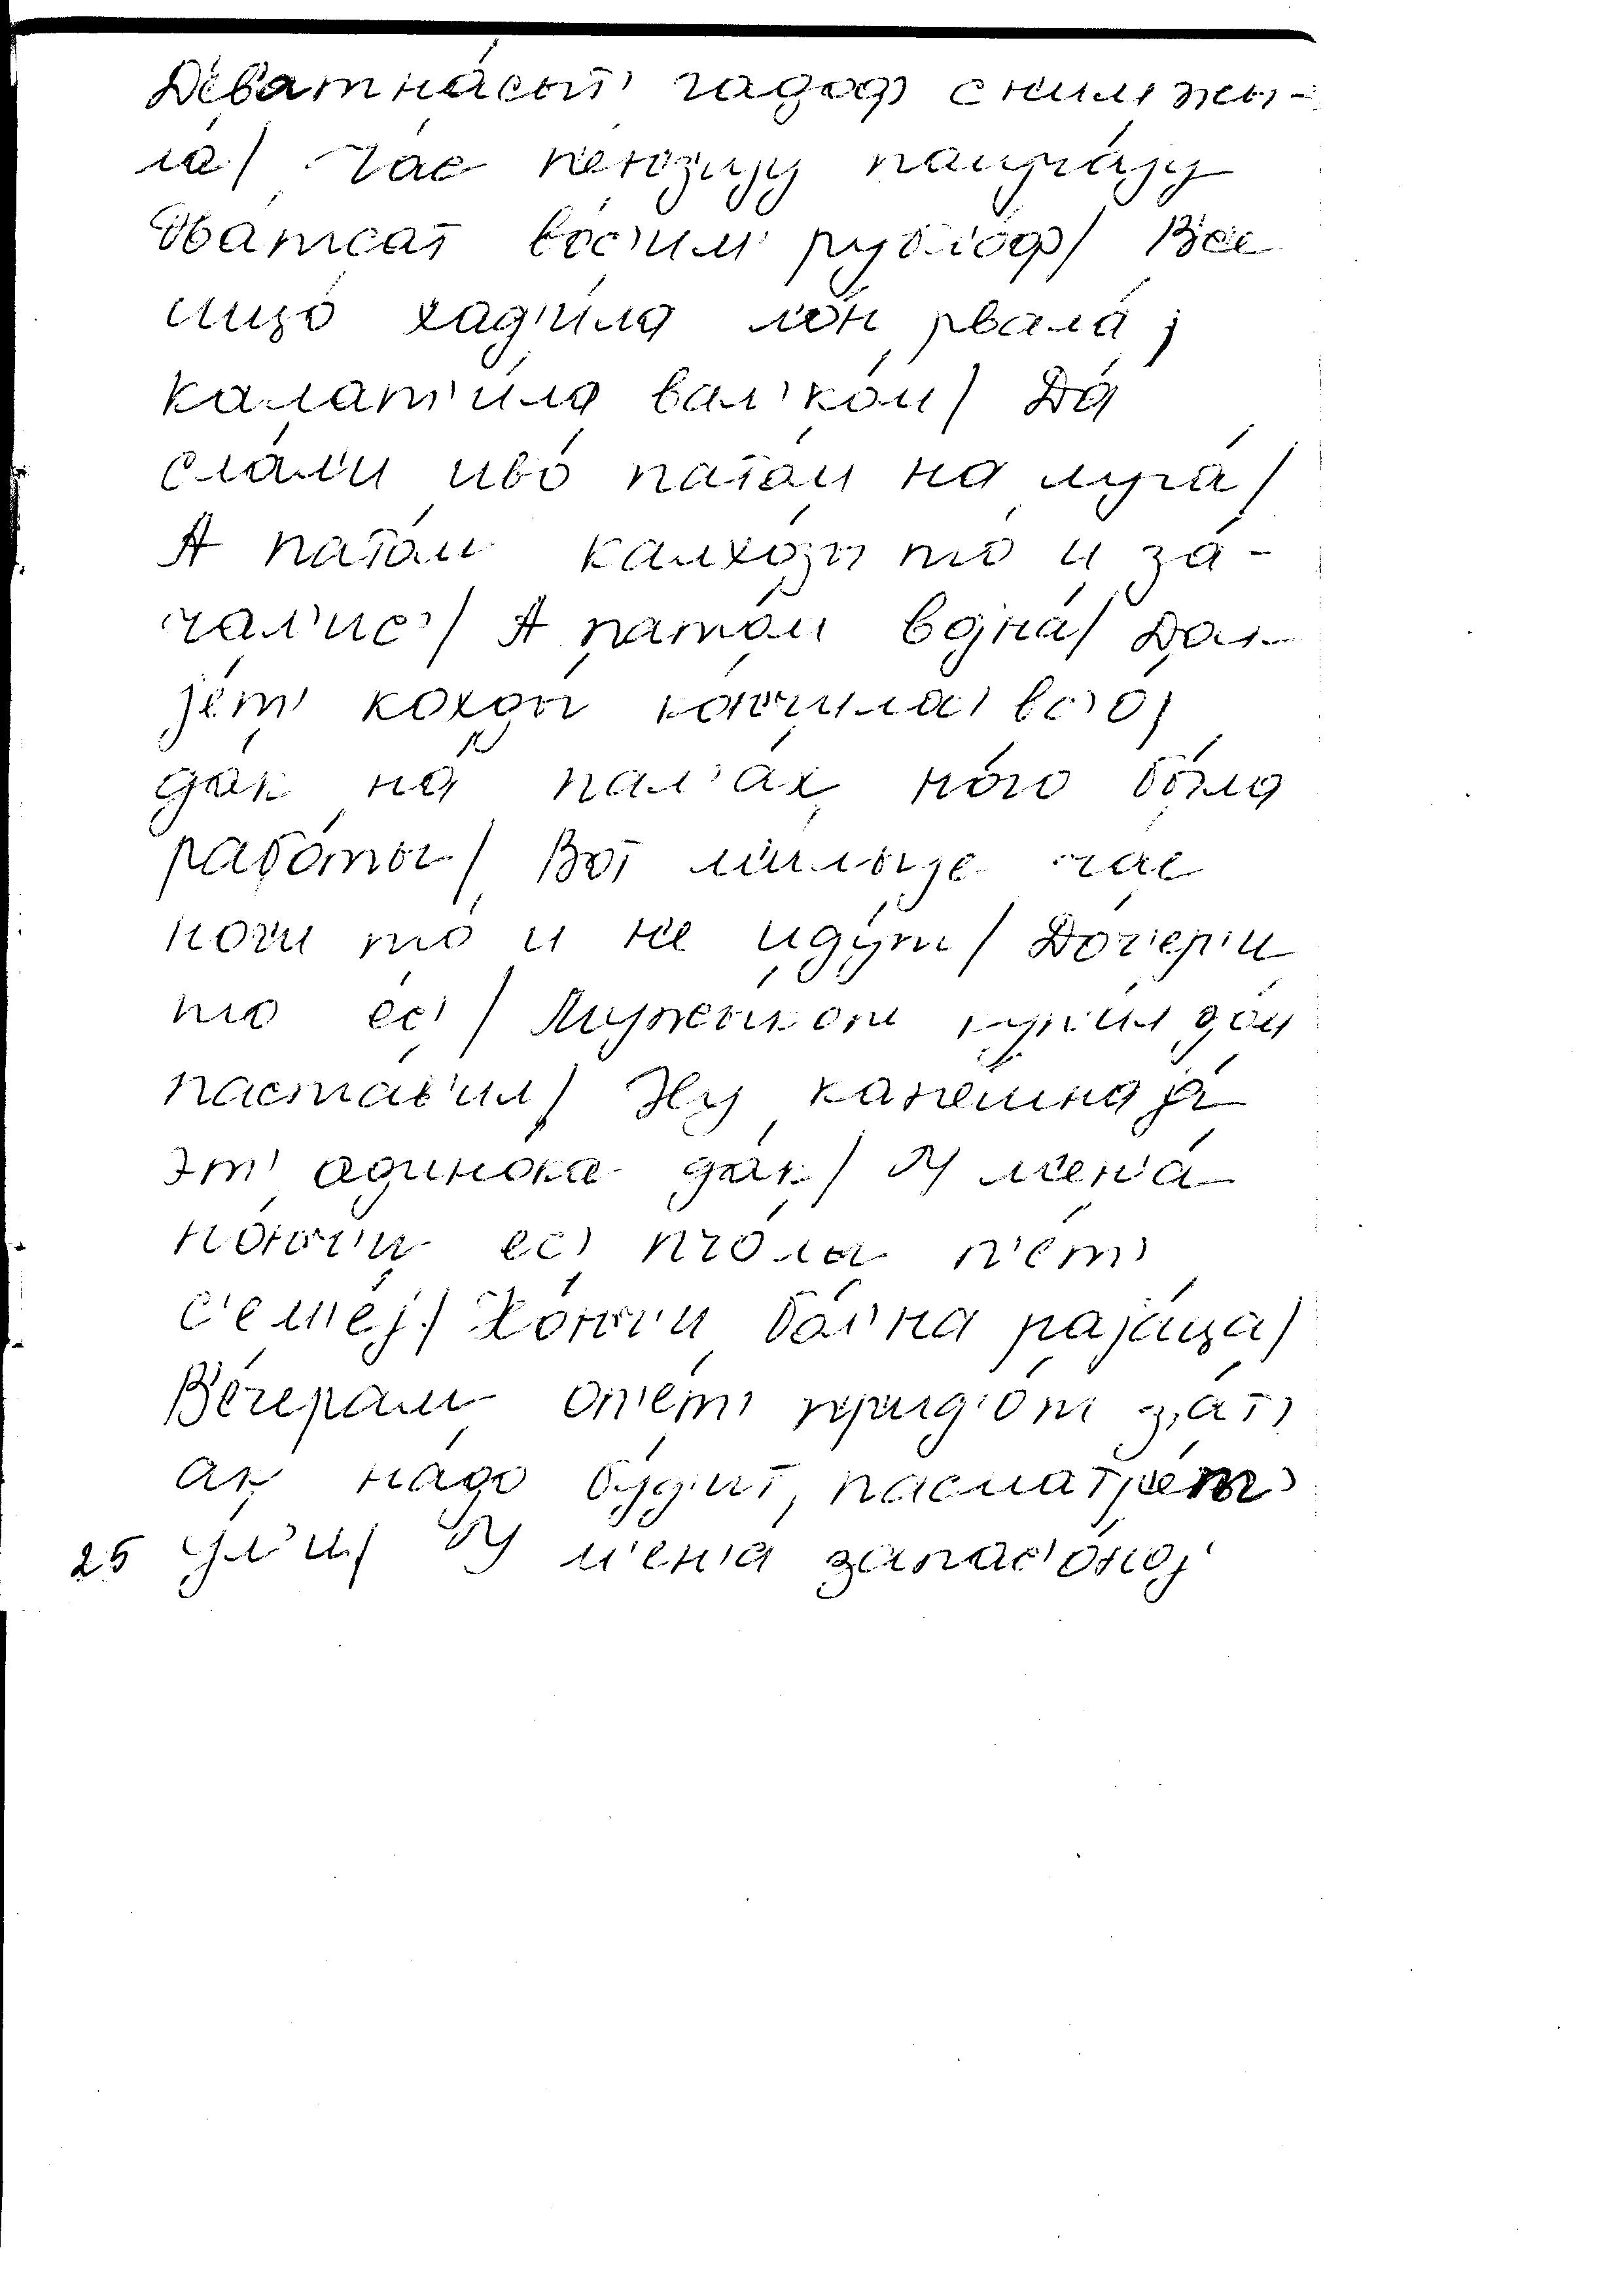 Д'еватна́сыт' гадоф с ним жы-
ла́/ Ча́с п'е́нз'ију палуча́ју
два́тсат во́с'им' рубл'о́ф/ В'се
ишзо́ хад'и́ла л'о́н рвала́,
калат'и́ла вал'ко́м/ Да́
сла́л'и иво́ пато́м на луга́/
А пато́м калхо́зы то́ и за́-
чал'ис'/ А пато́м војна́/ Да
је́т' когды́ ко́нчилас' вс'о,
да́к на́ пал'а́х мно́го бы́ла
рабо́ты/ Вот ми́лыје час
ноги то́ и н'е иду́т/ До́ч'ер'и
то е́с'/ Мужы́к он купи́л до́м
паста́в'ил/ Ну кан'е́шна ја́
эт' адино́ка да́к/ У м'ен'а́
но́нч'и ес' пчо́лы п'е́т'
с'ем'е́ј/ Но́нч'и бо́л'на раја́ца/
В'е́черам оп'е́т' прид'о́т з'а́т'
ак на́до бу́д'ит, пасматр'е́т'
25 у́л'и/ У м'ен'а́ запас'о́ној